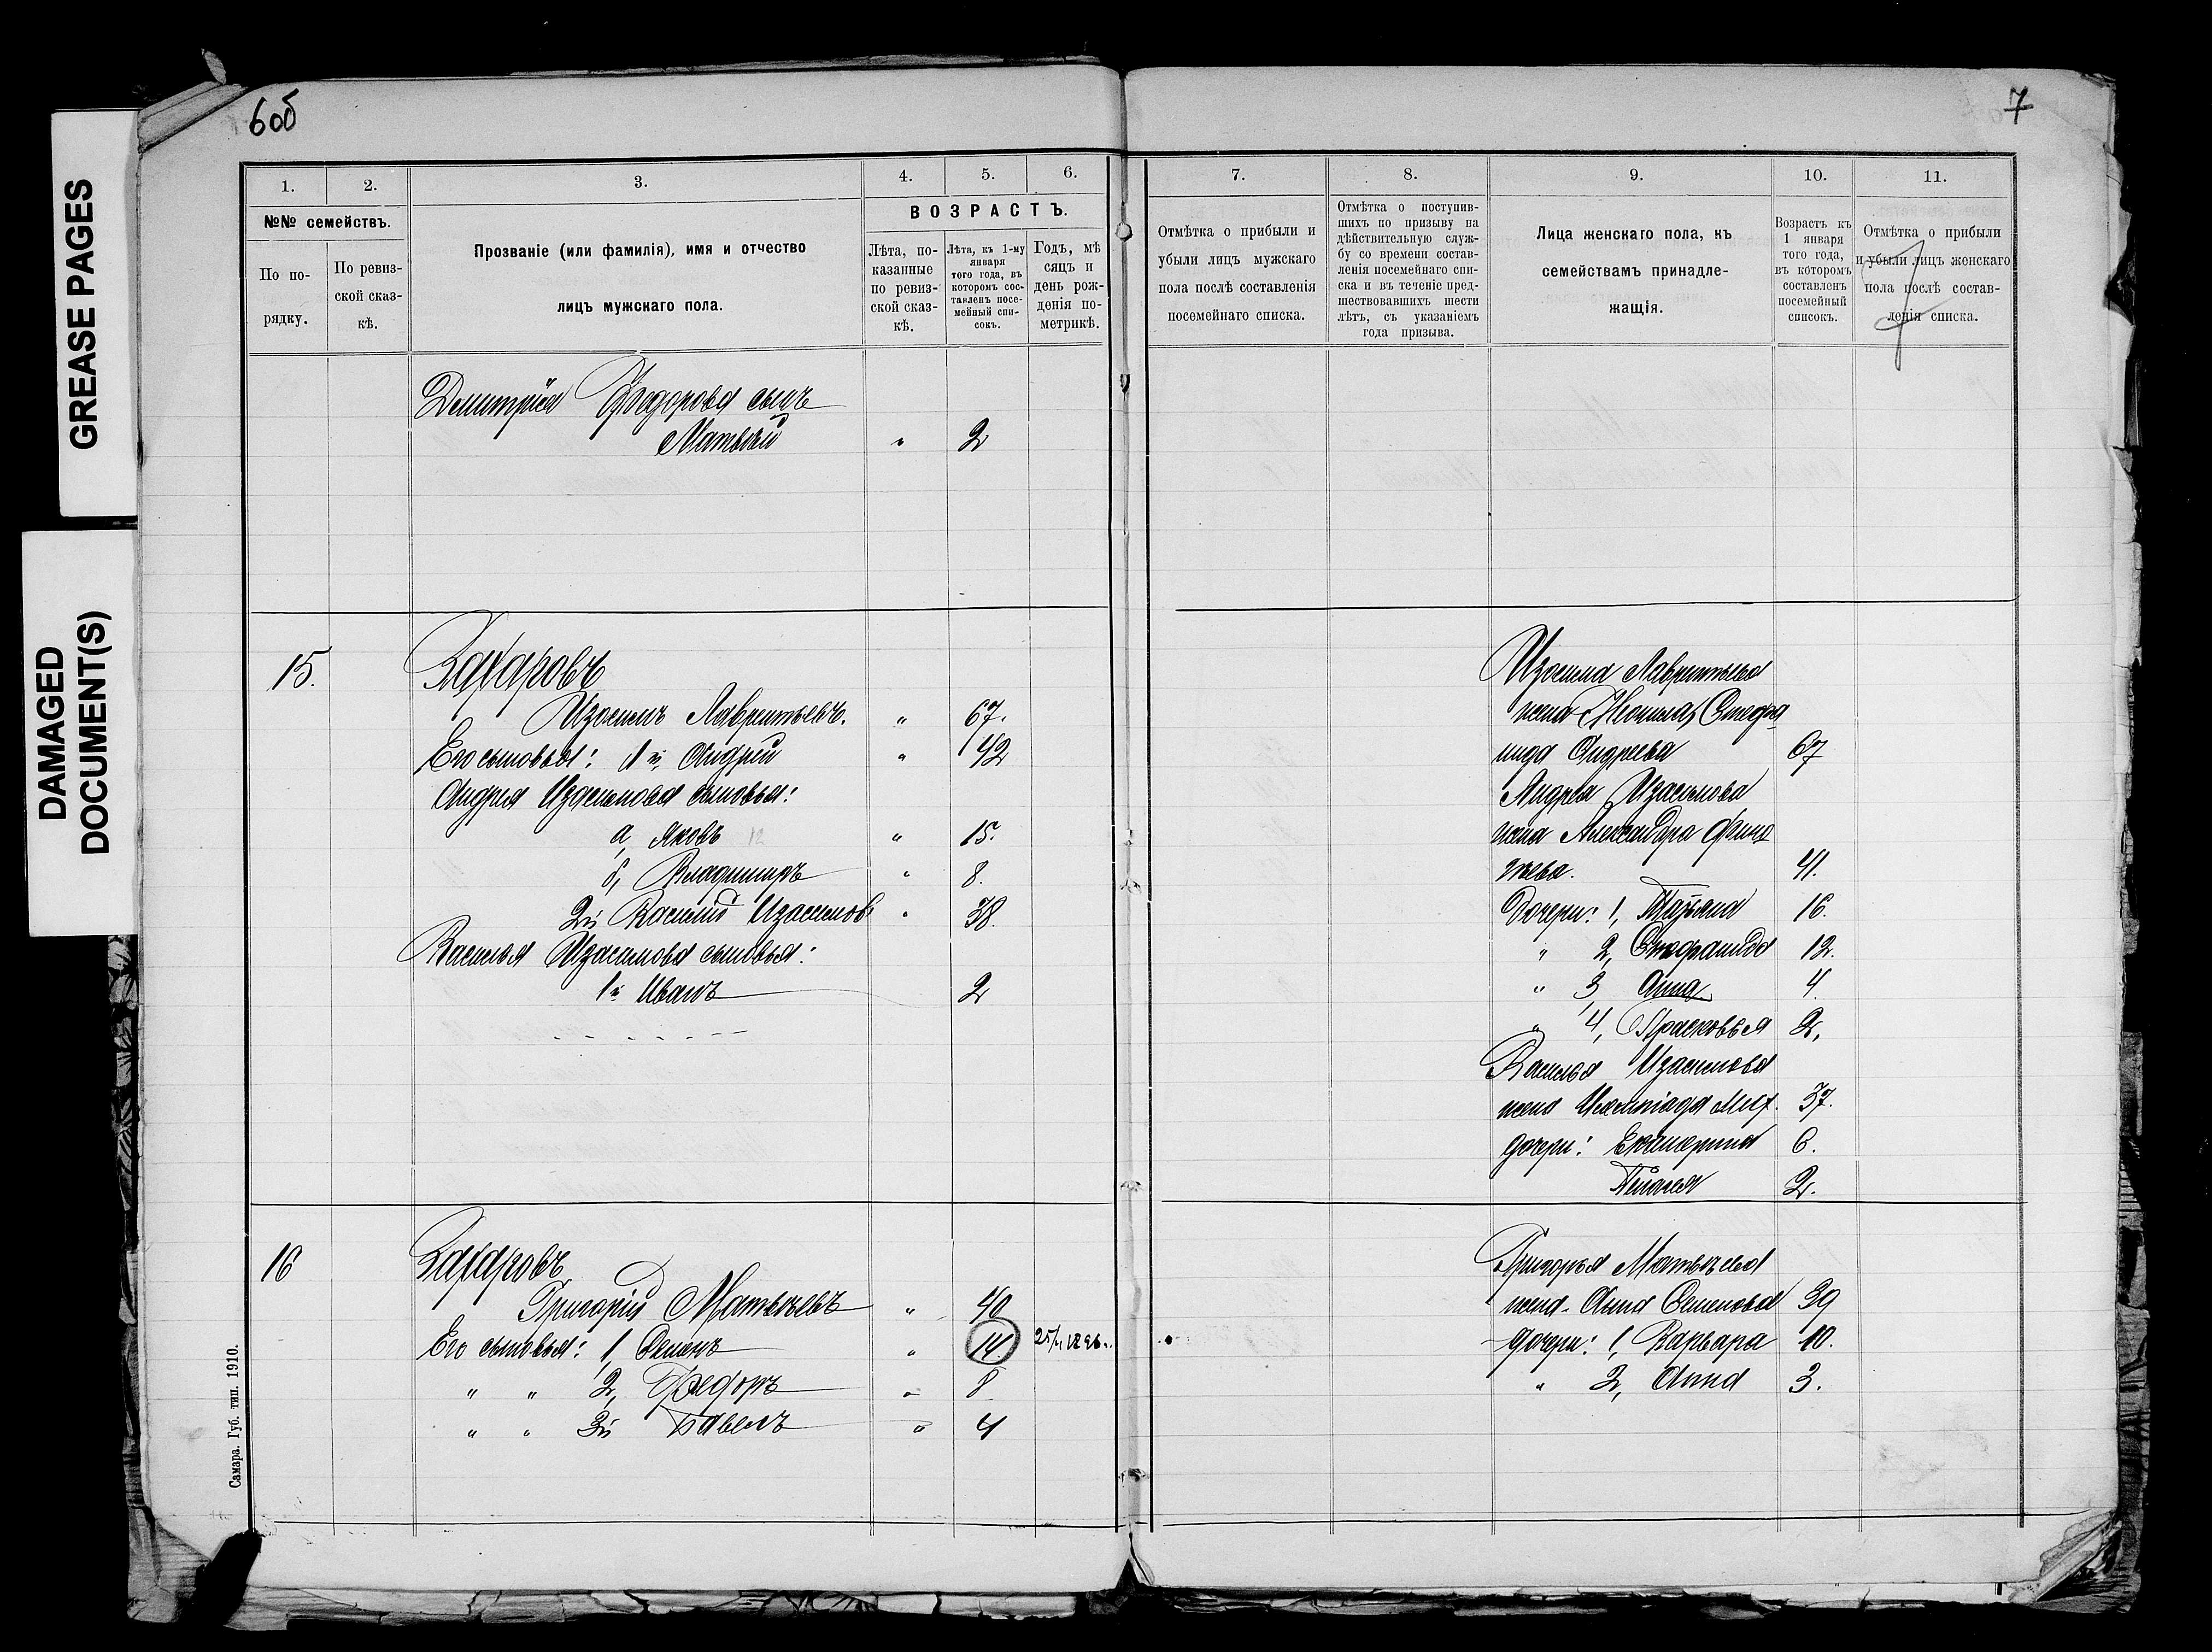 6об
7
GREASE PAGES
DAMAGED
DOCUMENT(S)
1.
2.
3.
4.
5.
6.
7.
8.
9.
10.
11.
№№ семействъ.
По по-
рядку.
По ревиз-
ской сказ-
кѣ.
Прозваніе (или фамилія), имя и отчество
лицъ мужскаго пола.
ВОЗРАСТЪ.
Лѣта, по-
казанные
по ревиз-
ской сказ-
кѣ.
Лѣта, къ 1-му
января
того года, въ
которомъ сос-
тавленъ посе-
мейный спи-
сокъ.
Годъ, мѣ
сяцъ и
день рож-
денія по-
метрикѣ.
Отмѣтка о прибыли и
убыли лицъ мужскаго
пола послѣ составленія
посемейнаго списка.
Отмѣтка о поступив-
шихъ по призыву на
дѣйствительную служ-
бу со времени состав-
ленія посемейнаго спи-
ска и въ теченіе пред-
шествовавшихъ шести
лѣтъ, съ указаніемъ
года призыва.
Лица женскаго пола, къ
семействамъ принадле-
жащія.
Возрастъ къ
1 января
того года,
въ которомъ
составленъ
посемейный
списокъ.
Отмѣтка о прибыли
и убыли лицъ женскаго
пола послѣ состав-
ленія списка.
Дмитрія Федорова сынъ
Матвѣй " 2
15. Захаровъ
Изосимъ Лаврентьевъ. " 67.
Его сыновья: 1й Андрей " 42
Андрея Изосимова сыновья:
а, Яковъ 12 " 15.
б, Владимиръ " 8.
2й Василій Изосимовъ " 38.
Василья Изосимова сыновья:
1й Иванъ 2
Изосима Лаврентьева
жена Степа
нида Андреева 67
Андрея Изосимова
жена Александра
41.
Дочери: 1, Татьяна 16.
" 2, Степанида 12.
" 3 Анна 4.
" 4, Прасковья 2.
Василья Изосимова
жена Олимпіада Мих. 37.
дочери: Екатерина 6.
Пелагея 2.
16 Захаровъ
Григорій Матвѣевъ " 40
Его сыновья: 1, Семенъ " 14. 25/ 1896.
" " 2, Федоръ " 8
" " 3й Павелъ " 4
Григорья Матвѣева
жена - Анна Семенова 39
дочери: 1, Варвара 10.
" 2, Анна 3.
Самара. Губ. тип. 1910.